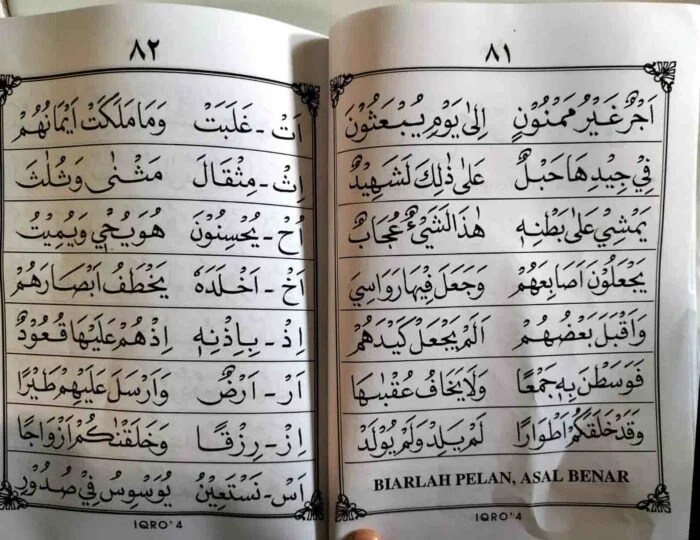 ٨١
اَجْرٌ غَيْرُ مَمْنُوْنٍ اِلٰى يَوْمِ يُبْعَثُوْنَ
فِيْ جِيْدِهَا حَبْلٌ عَلٰى ذٰلِكَ لَشَهِيْدٌ
يَمْشِيْ عَلٰى بَطْنِهٖ هٰذَا لَشَيْءٌ عُجَابٌ
يَجْعَلُوْنَ اَصَابِعَهُمْ وَجَعَلَ فِيْهَا رَوَاسِيَ
وَاَقْبَلَ بَعْضُهُمْ اَلَمْ يَجْعَلْ كَيْدَهُمْ
فَوَسَطْنَ بِهٖ جَمْعًا وَلَا يَخَافُ عُقْبٰىهَا
وَقَدْ خَلَقَكُمْ اَطْوَارًا لَمْ يَلِدْ وَلَمْ يُوْلَدْ
BIARLAH PELAN, ASAL BENAR
IQRO' 4
٨٢
اَتْ - غَلَبَتْ وَمَا مَلَكَتْ اَيْمَانُهُمْ
اِثْ - مِثْقَالَ مَثْنٰى وَثُلٰثَ
اُحْ - يُحْسِنُوْنَ هُوَ يُحْيِيْ وَيُمِيْتُ
اَخْ - اَخْلَدَهٗ يَخْطَفُ اَبْصَارَهُمْ
اِذْ - بِاِذْنِهٖ اِذْهُمْ عَلَيْهَا قُعُوْدٌ
اَرْ - اَرْضٌ وَاَرْسَلَ عَلَيْهِمْ طَيْرًا
اِزْ - رِزْقًا وَخَلَقْنٰكُمْ اَزْوَاجًا
اَسْ - نَسْتَعِيْنُ يُوَسْوِسُ فِيْ صُدُوْرِ
IQRO' 4